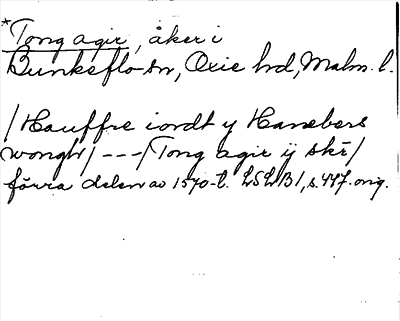 *Tong agir, åker i
Bunkeflo sn, Oxie hd, Malm. l.
/Hauffre iordt y Hanebers
wongh/ --- /Tong agir ij skr/
förra delen av 1570-t. LSLB1, s. 447. orig.